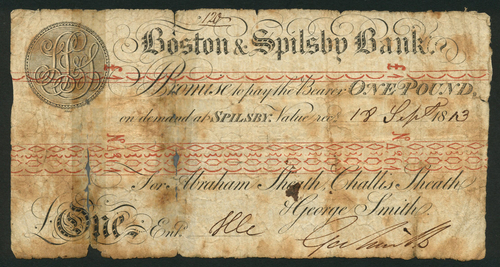 120
Boston & Spilsby Bank.
Promise to pay the Bearer ONE POUND
on demand at SPILSBY. Value recd. 18 Sept 1813
For Abraham Sheath, Challis Sheath
& George Smith.
£ One
Entd.